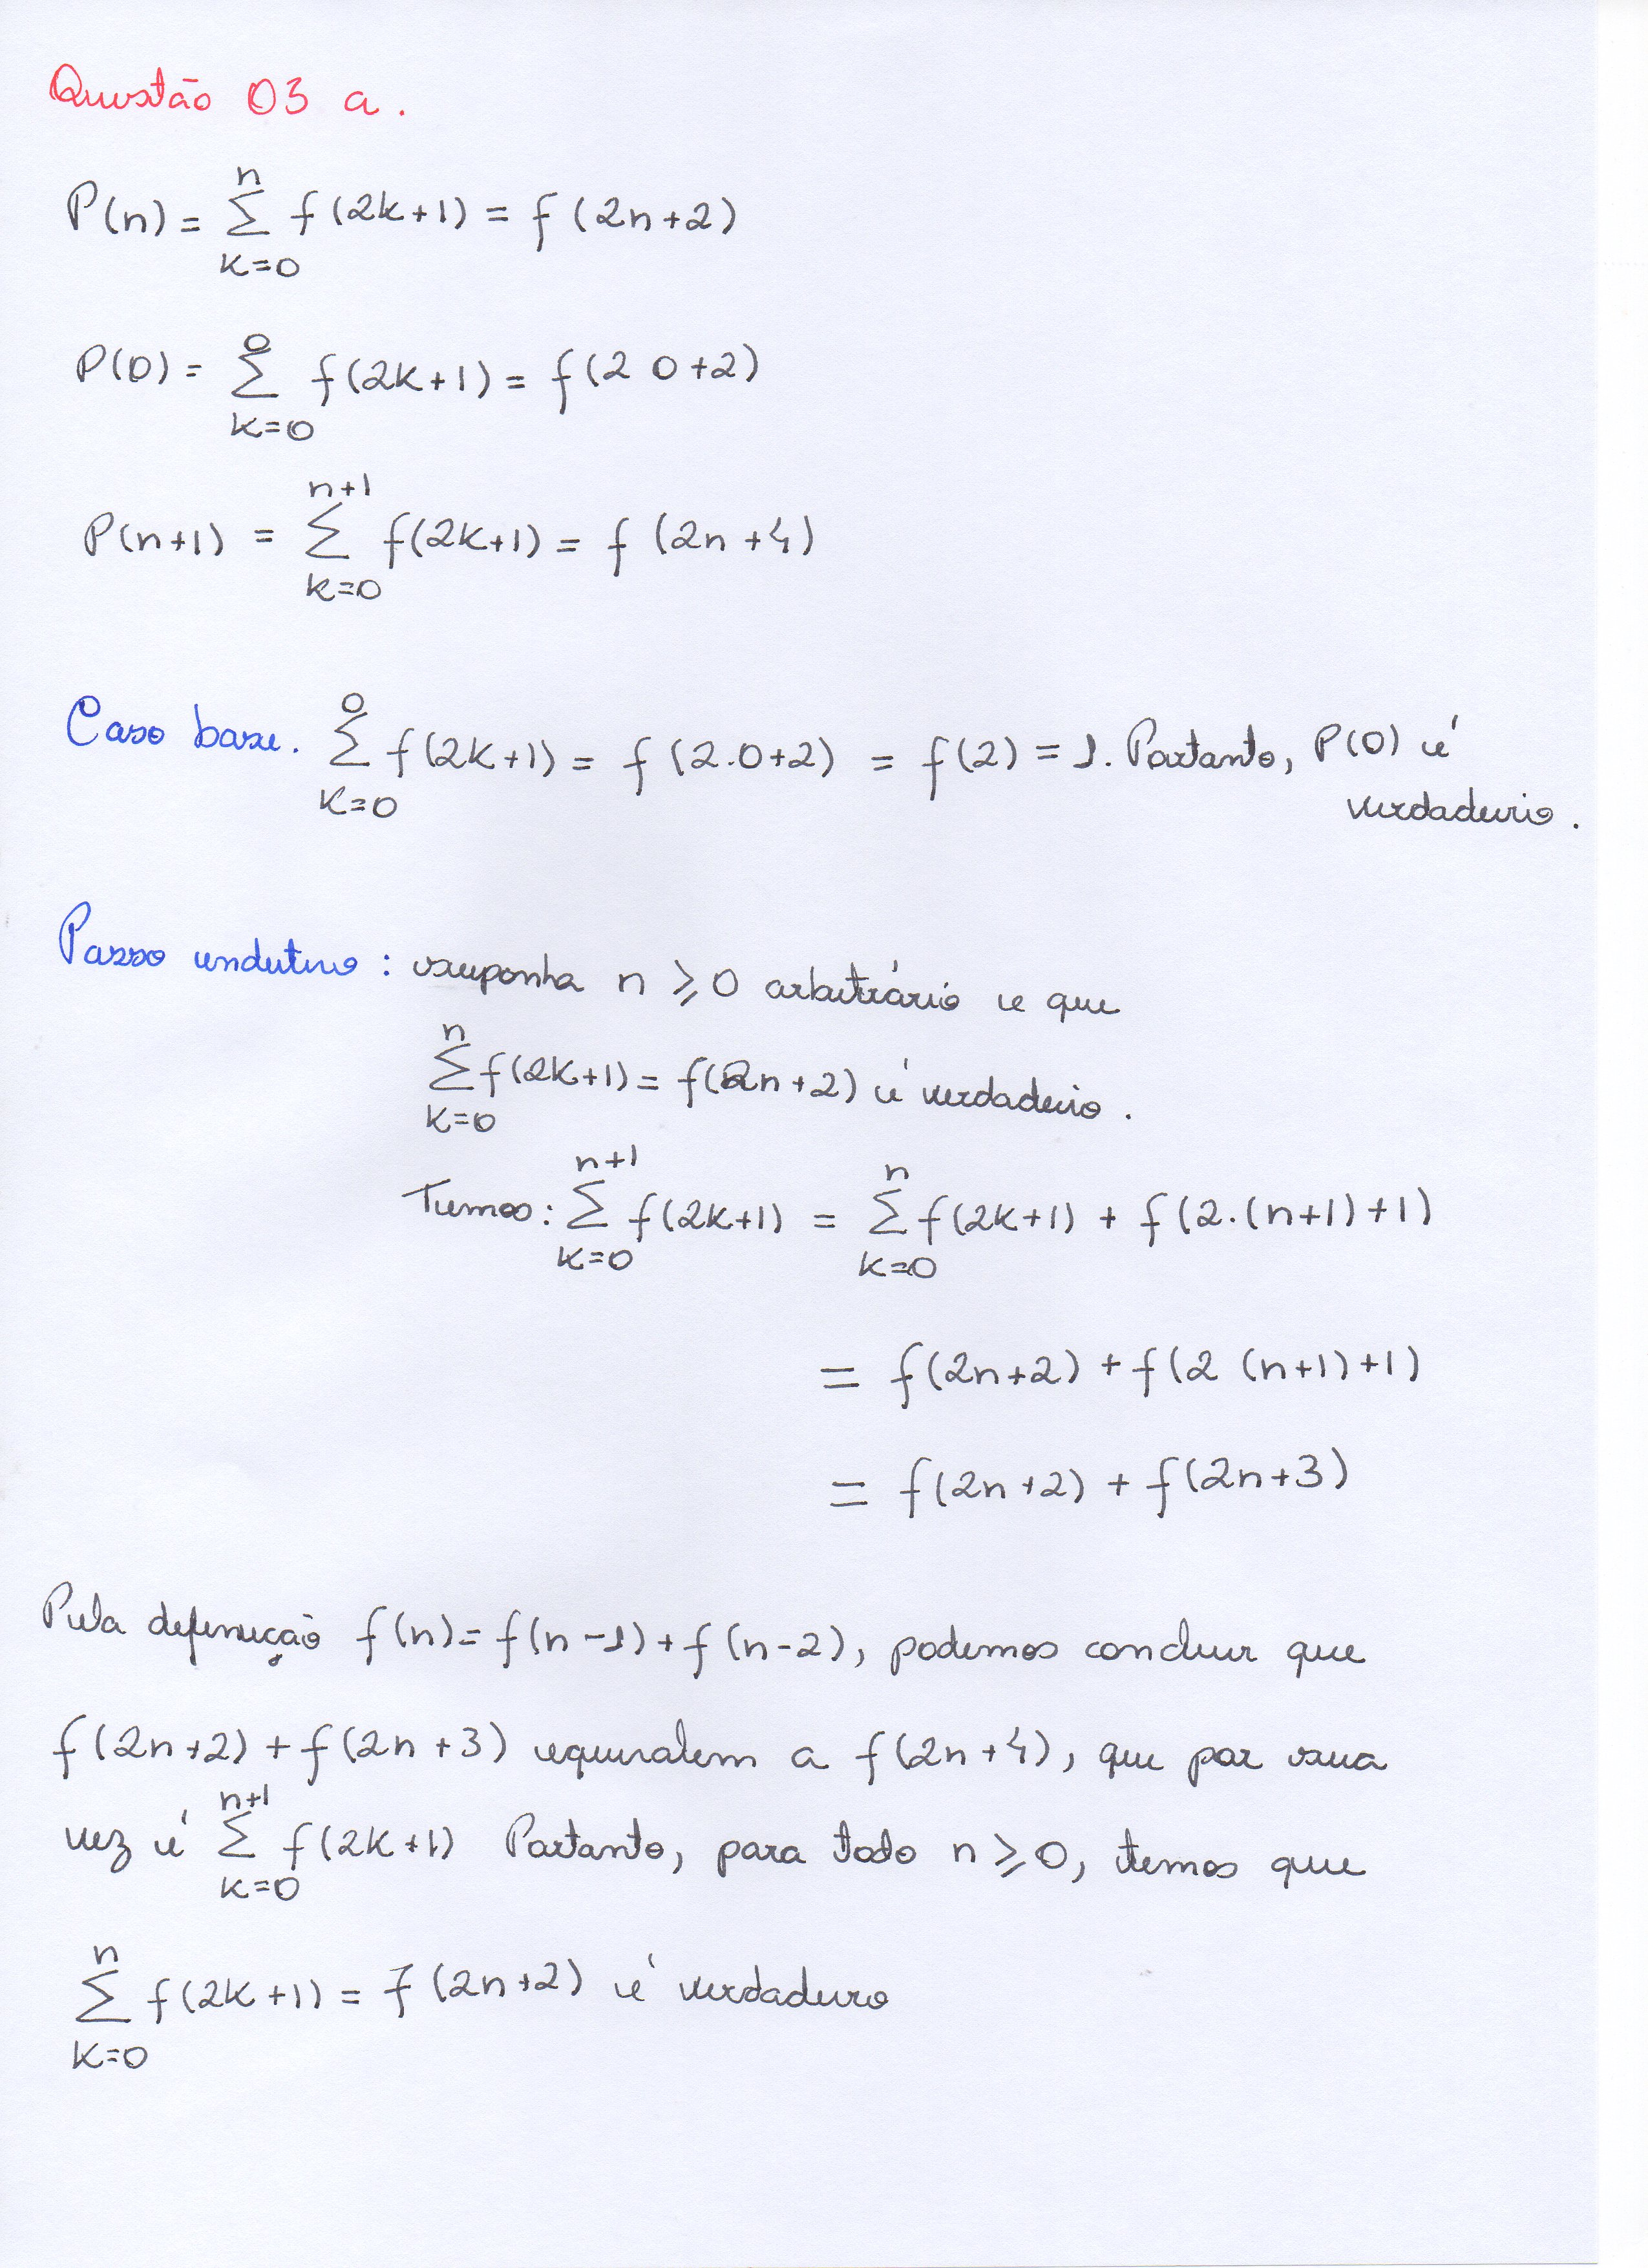 Questão 03 a.
P(n) = ∑_{k=0}^{n} f(2k+1) = f(2n+2)
P(0) = ∑_{k=0}^{0} f(2k+1) = f(2 0+2)
P(n+1) = ∑_{k=0}^{n+1} f(2k+1) = f(2n+4)
Caso base. ∑_{k=0}^{0} f(2k+1) = f(2.0+2) = f(2) = 1. Portanto, P(0) é
verdadeiro.
Passo indutivo: suponha n ≥ 0 arbitrário e que
∑_{k=0}^{n} f(2k+1) = f(2n+2) é verdadeiro.
Temos: ∑_{k=0}^{n+1} f(2k+1) = ∑_{k=0}^{n} f(2k+1) + f(2.(n+1)+1)
= f(2n+2) + f(2 (n+1)+1)
= f(2n+2) + f(2n+3)
Pela definição f(n) = f(n-1) + f(n-2), podemos concluir que
f(2n+2) + f(2n+3) equivalem a f(2n+4), que por sua
vez é ∑_{k=0}^{n+1} f(2k+1) Portanto, para todo n ≥ 0, temos que
∑_{k=0}^{n} f(2k+1) = f(2n+2) é verdadeiro